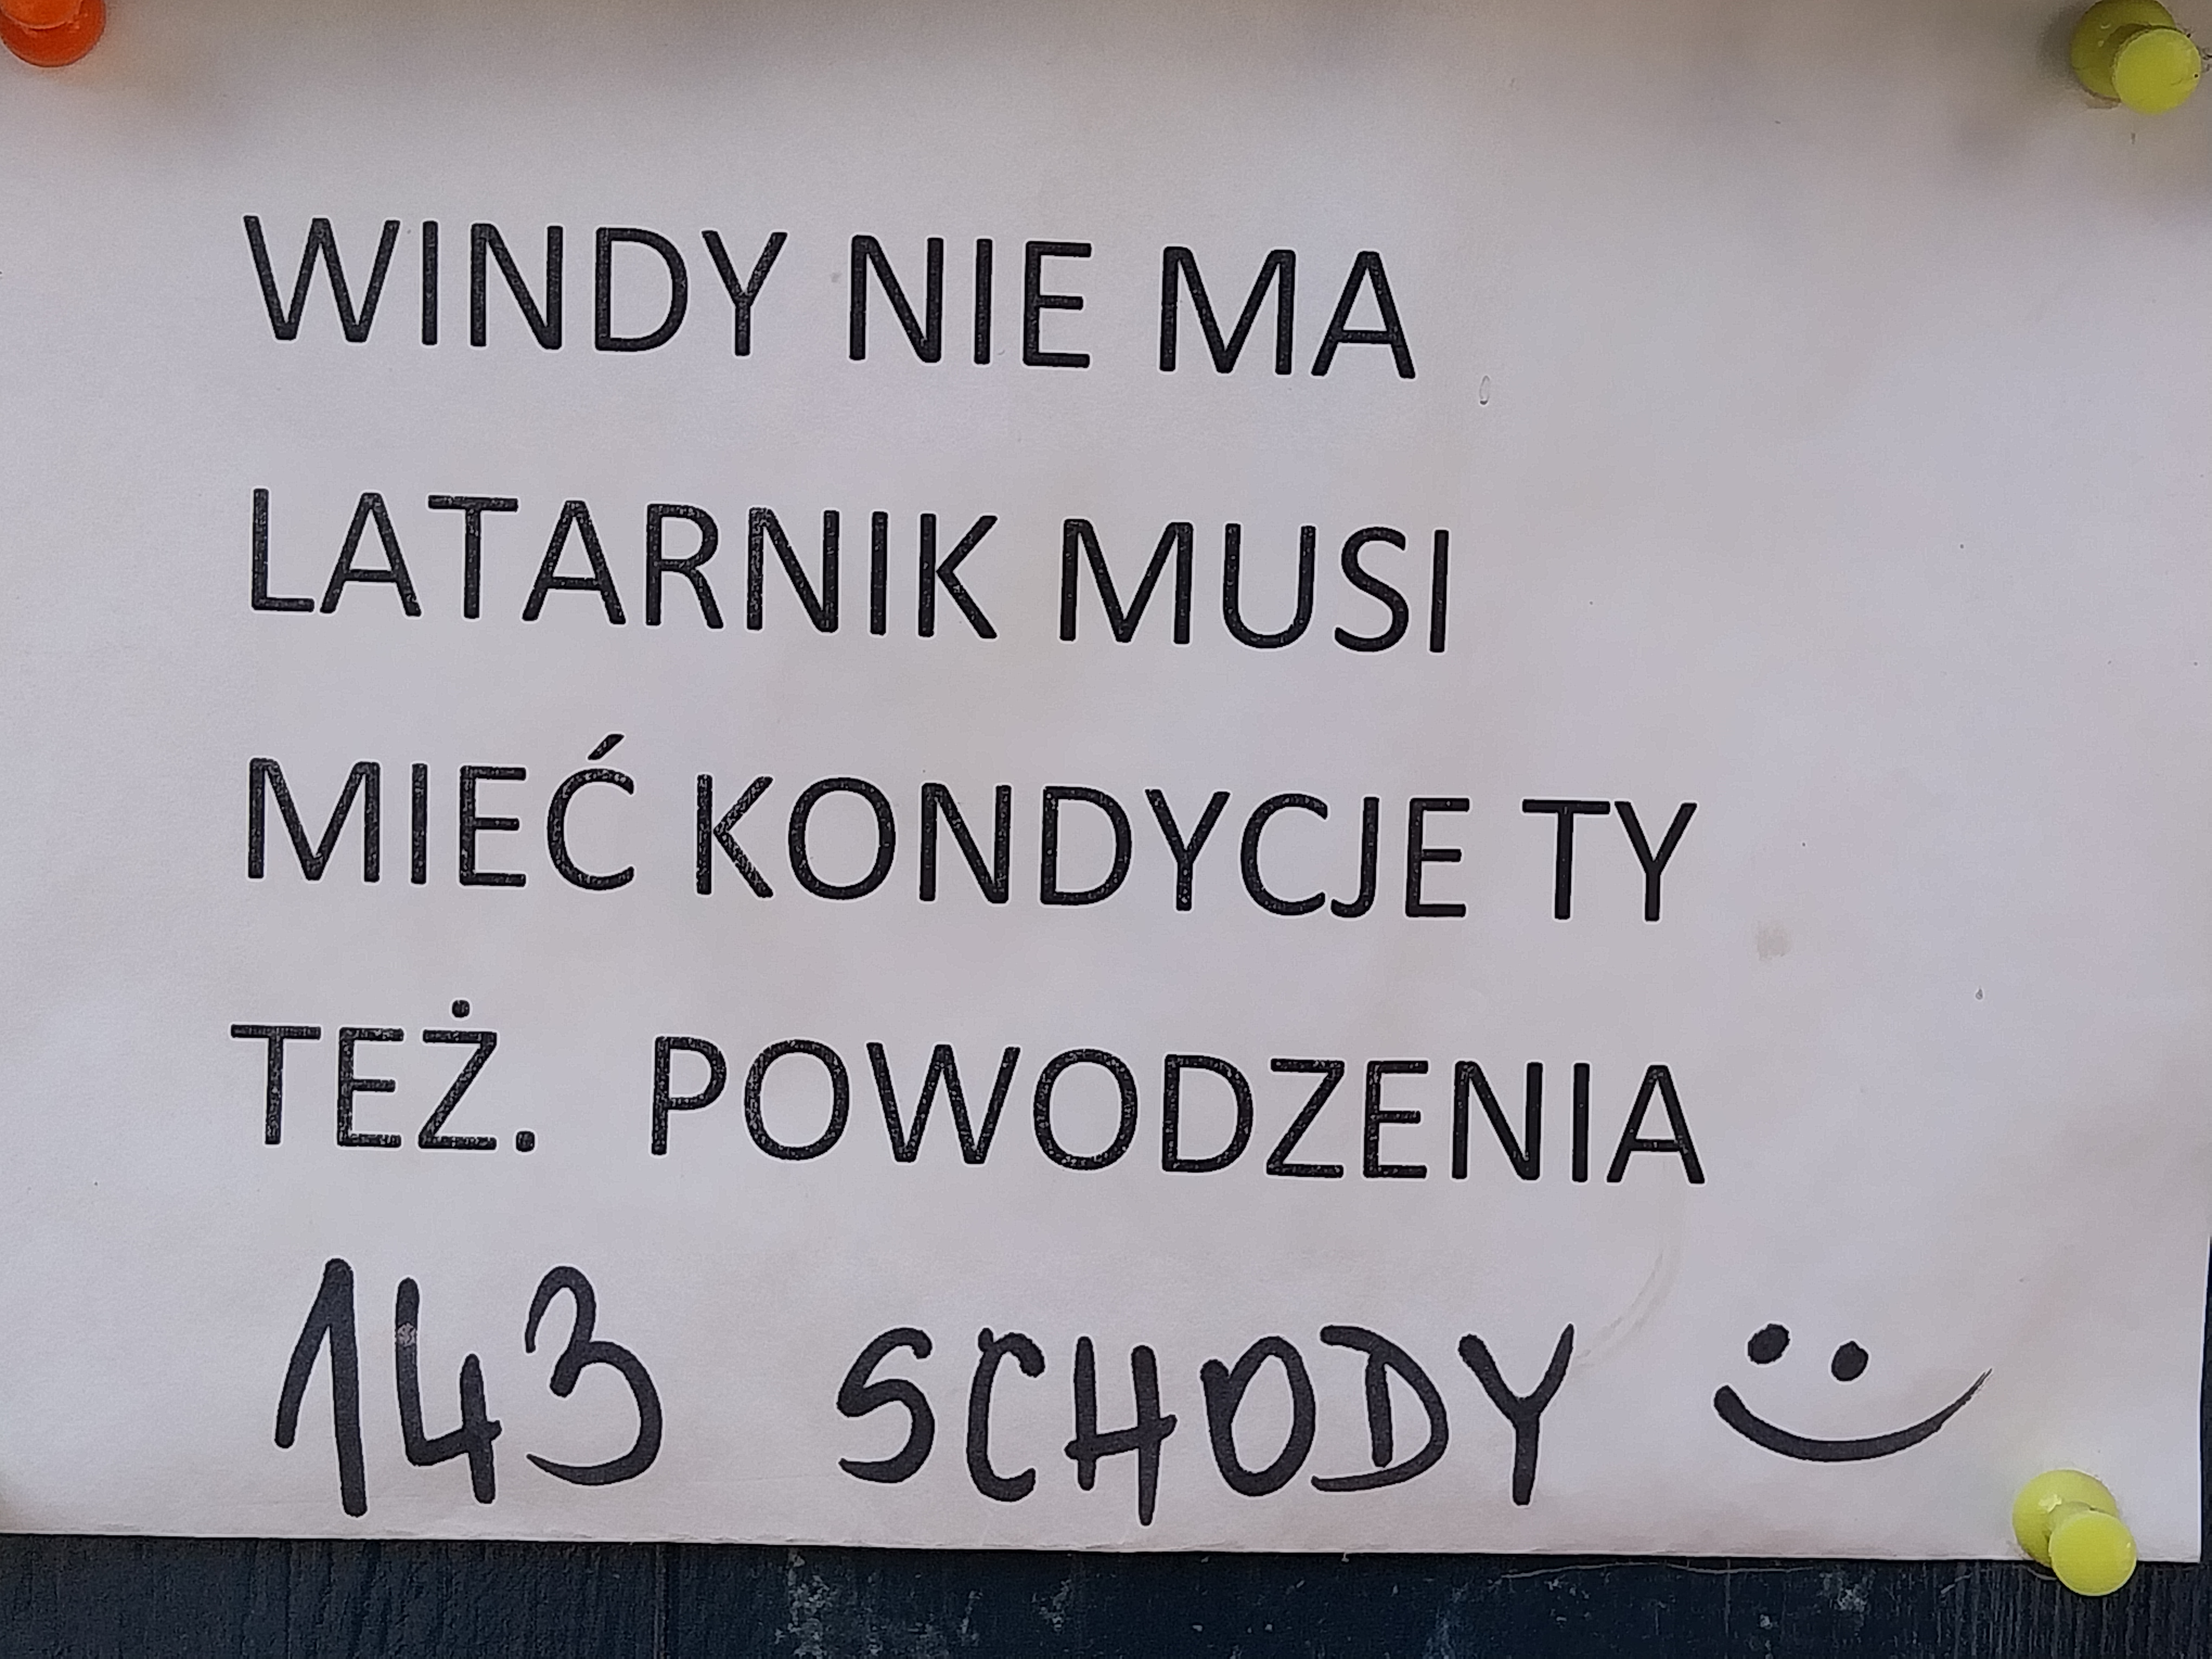 WINDY NIE MA
LATARNIK MUSI
MIEĆ KONDYCJE TY
TEŻ. POWODZENIA
143 SCHODY